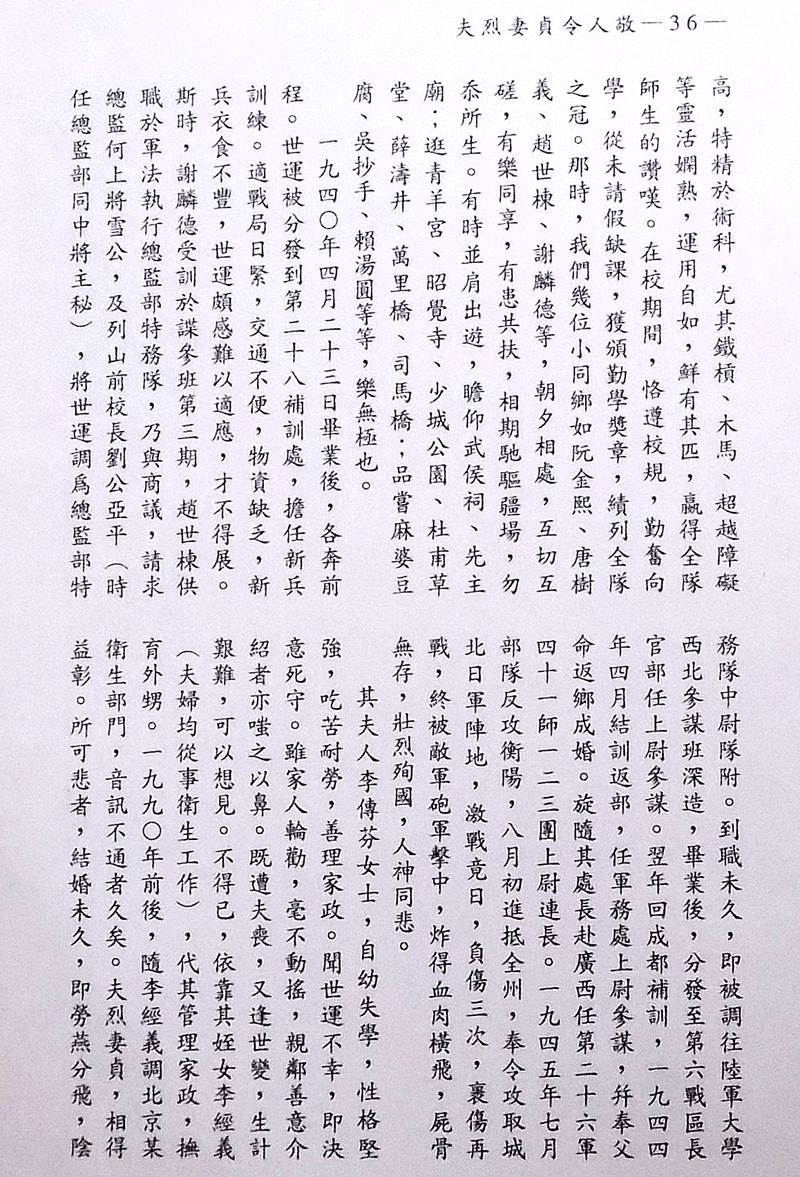 夫烈妻貞令人敬—36—
高，特精於術科，尤其鐵槓、木馬、超越障礙
等靈活嫻熟，運用自如，鮮有其匹，贏得全隊
師生的讚嘆。在校期間，恪遵校規，勤奮向
學，從未請假缺課，獲頒勤學獎章，績列全隊
之冠。那時，我們幾位小同鄉如阮金熙、唐樹
義、趙世棟、謝麟德等，朝夕相處，互切互
磋，有樂同享，有患共扶，相期馳驅疆場，勿
忝所生。有時並肩出遊，瞻仰武侯祠、先主
廟；逛青羊宮、昭覺寺、少城公園、杜甫草
堂、薛濤井、萬里橋、司馬橋；品嘗麻婆豆
腐、吳抄手、賴湯圓等等，樂無極也。
一九四〇年四月二十三日畢業後，各奔前
程。世運被分發到第二十八補訓處，擔任新兵
訓練。適戰局日緊，交通不便，物資缺乏，新
兵衣食不豐，世運頗感難以適應，才不得展。
斯時，謝麟德受訓於諜參班第三期，趙世棟供
職於軍法執行總監部特務隊，乃與商議，請求
總監何上將雪公，及列山前校長劉公亞平（時
任總監部同中將主秘），將世運調爲總監部特
務隊中尉隊附。到職未久，即被調往陸軍大學
西北參謀班深造，畢業後，分發至第六戰區長
官部任上尉參謀。翌年回成都補訓，一九四四
年四月結訓返部，任軍務處上尉參謀，幷奉父
命返鄉成婚。旋隨其處長赴廣西任第二十六軍
四十一師一二三團上尉連長。一九四五年七月
部隊反攻衡陽，八月初進抵全州，奉令攻取城
北日軍陣地，激戰竟日，負傷三次，裹傷再
戰，終被敵軍砲軍擊中，炸得血肉橫飛，屍骨
無存，壯烈殉國，人神同悲。
其夫人李傳芬女士，自幼失學，性格堅
強，吃苦耐勞，善理家政。聞世運不幸，即決
意死守。雖家人輪勸，毫不動搖，親鄰善意介
紹者亦嗤之以鼻。既遭夫喪，又逢世變，生計
艱難，可以想見。不得已，依靠其姪女李經義
（夫婦均從事衛生工作），代其管理家政，撫
育外甥。一九九〇年前後，隨李經義調北京某
衛生部門，音訊不通者久矣。夫烈妻貞，相得
益彰。所可悲者，結婚未久，即勞燕分飛，陰